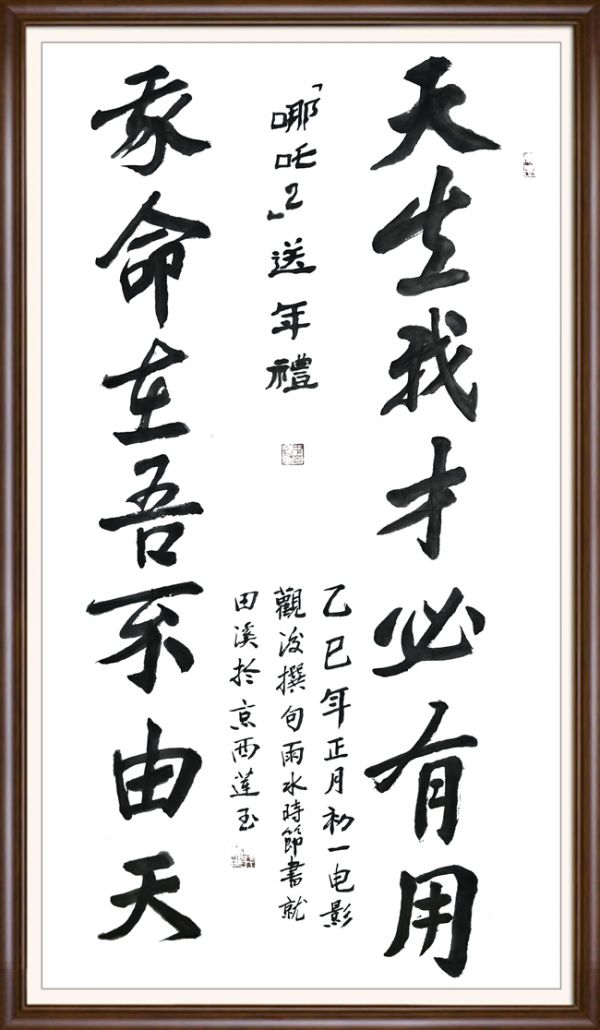 天生我才必有用
「哪吒2」送年禮
乙巳年正月初一电影
觀後撰句雨水時節書就
田溪於京西莲玉
我命在吾不由天